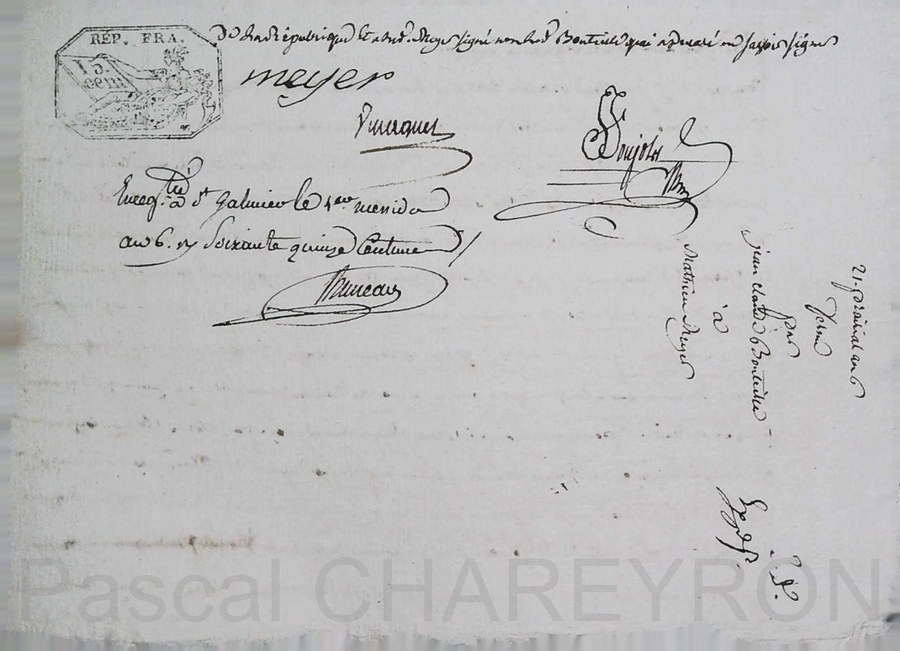 RÉP. FRA.
15.
cent.
De La République Led. Meyer signé non led. Bouteille qui a déclaré ne savoir signer
meyer
Enreg.tré à St Galmier le 4eme messidor
an 6. Soixante quinze Centimes
21 prairial an 6
ferme
par
jean Claude Bouteille
à
Mathieu Meyer
Expd.
Pascal CHAREYRON